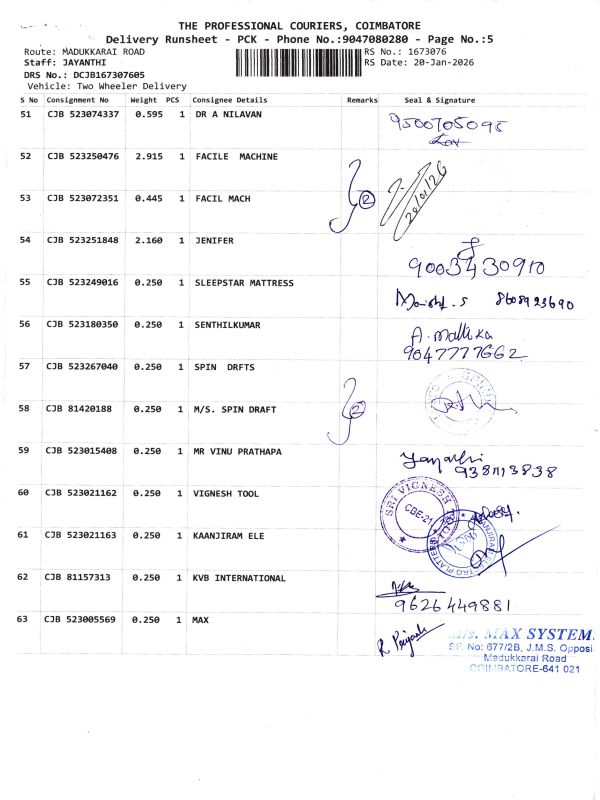 THE PROFESSIONAL COURIERS, COIMBATORE
Delivery Runsheet - PCK - Phone No.:9047080280 - Page No.:5
Route: MADUKKARAI ROAD RS No.: 1673076
Staff: JAYANTHI RS Date: 20-Jan-2026
DRS No.: DCJB167307605
Vehicle: Two Wheeler Delivery
S No Consignment No Weight PCS Consignee Details Remarks Seal & Signature
51 CJB 523074337 0.595 1 DR A NILAVAN 9500705095
52 CJB 523250476 2.915 1 FACILE MACHINE
53 CJB 523072351 0.445 1 FACIL MACH 2 20/01/26
54 CJB 523251848 2.160 1 JENIFER 9003430910
55 CJB 523249016 0.250 1 SLEEPSTAR MATTRESS 8608923690
56 CJB 523180350 0.250 1 SENTHILKUMAR A. Mallika
9047777662
57 CJB 523267040 0.250 1 SPIN DRFTS
58 CJB 81420188 0.250 1 M/S. SPIN DRAFT 2
59 CJB 523015408 0.250 1 MR VINU PRATHAPA Jayanthi
9381113838
60 CJB 523021162 0.250 1 VIGNESH TOOL SRI VIGNESH CBE-21
61 CJB 523021163 0.250 1 KAANJIRAM ELE
62 CJB 81157313 0.250 1 KVB INTERNATIONAL
9626449881
63 CJB 523005569 0.250 1 MAX R. Priyanka M/s. MAX SYSTEM
SF. No: 677/2B, J.M.S. Opposi
Madukkarai Road
COIMBATORE-641 021